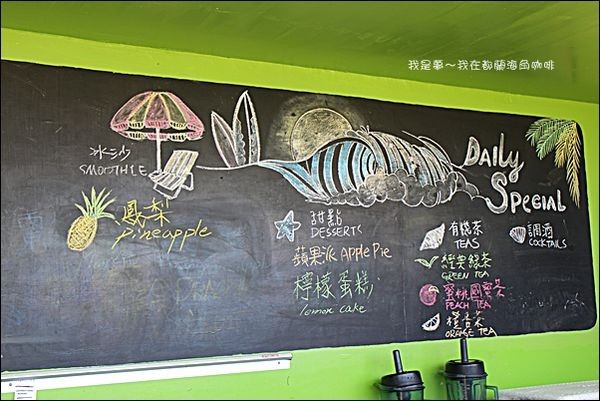 我是夢～我在都蘭海角咖啡
DAILY
SPECIAL
冰沙
SMOOTHIE
鳳梨
pineapple
甜點
DESSERTS
蘋果派 Apple Pie
檸檬蛋糕
lemon cake
有機茶
TEAS
GREEN TEA
蜜桃國寶茶
PEACH TEA
橙香茶
ORANGE TEA
調酒
COCKTAILS